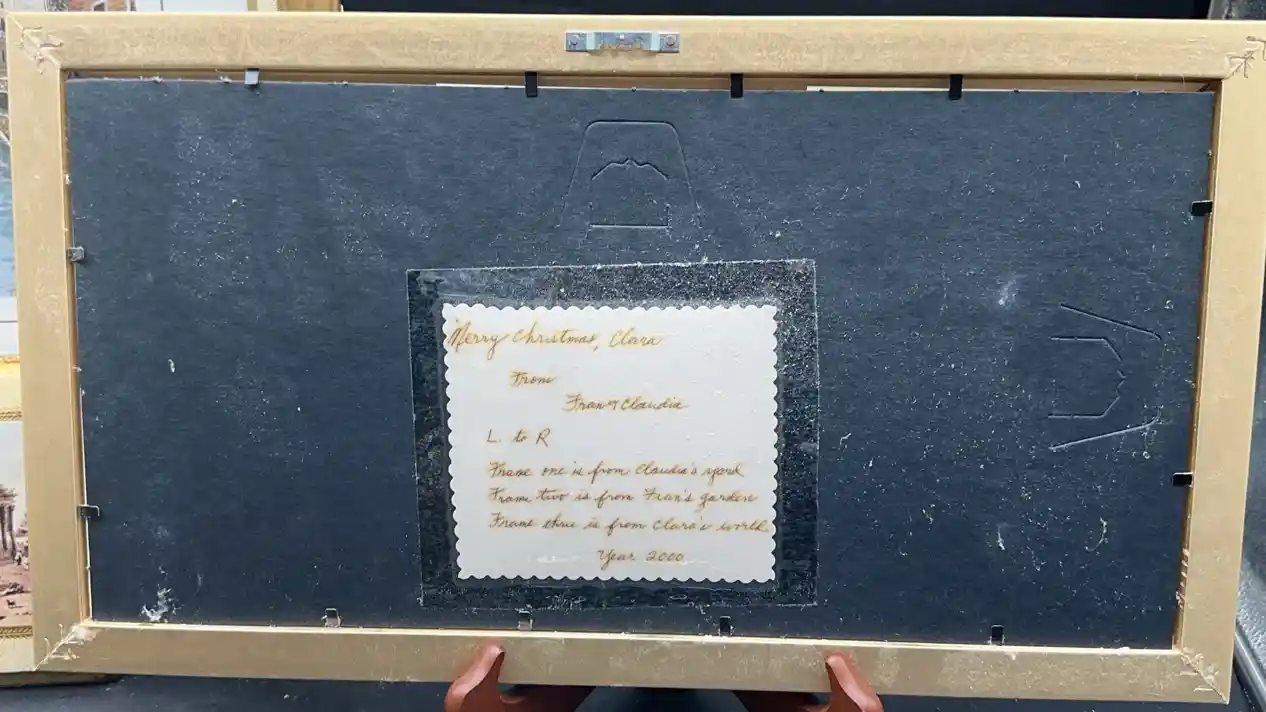 Merry Christmas, Clara
From
Fran & Claudia
L. to R
Frame one is from Claudia's yard
Frame two is from Fran's garden
Frame three is from Clara's world
Year 2000